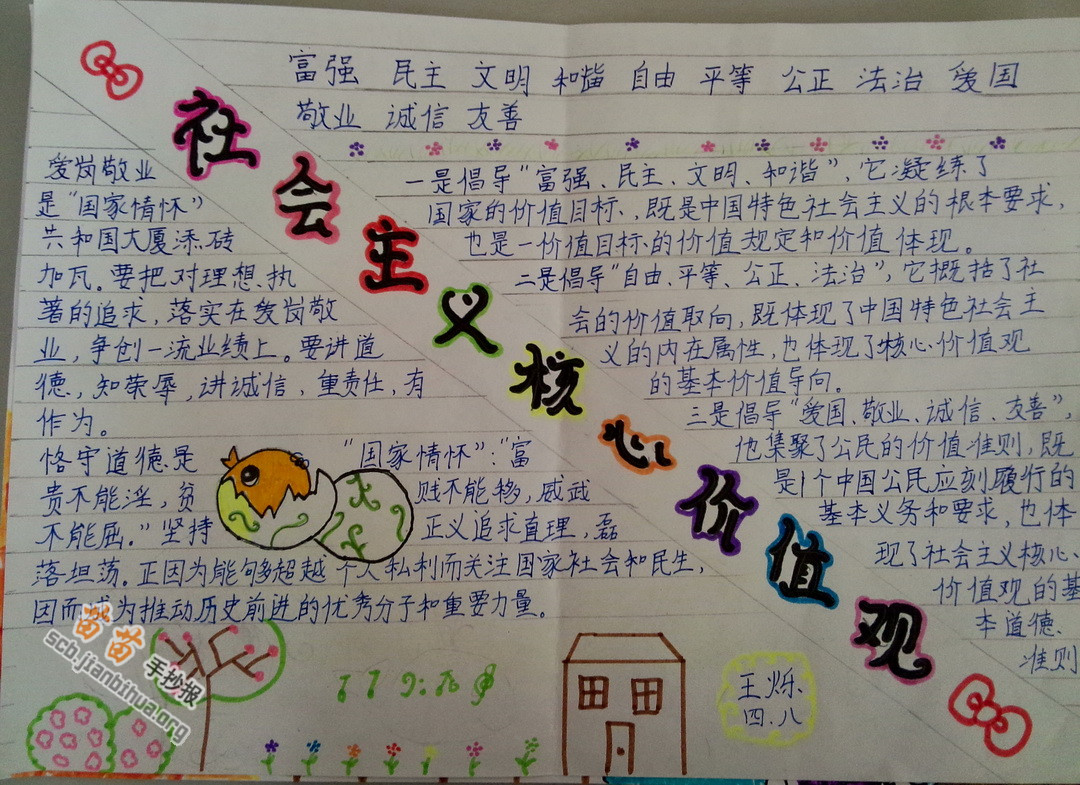 富强 民主 文明 和谐 自由 平等 公正 法治 爱国
敬业 诚信 友善
社会主义核心价值观
爱岗敬业
是“国家情怀”
共和国大厦添砖
加瓦。要把对理想、执
著的追求，落实在爱岗敬
业，争创一流业绩上。要讲道
德，知荣辱，讲诚信，重责任，有
作为。
恪守道德是 “国家情怀”：“富
贵不能淫，贫 贱不能移，威武
不能屈。”坚持 正义追求真理，磊
落坦荡。正因为能够超越个人私利而关注国家社会和民生，
因而成为推动历史前进的优秀分子和重要力量。
一是倡导“富强、民主、文明、和谐”，它凝练了
国家的价值目标，既是中国特色社会主义的根本要求，
也是一价值目标的价值规定和价值体现。
二是倡导“自由、平等、公正、法治”，它概括了社
会的价值取向，既体现了中国特色社会主
义的内在属性，也体现了核心价值观
的基本价值导向。
三是倡导“爱国、敬业、诚信、友善”，
他集聚了公民的价值准则，既
是1个中国公民应刻履行的
基本义务和要求，也体
现了社会主义核心、
价值观的基
本道德、
准则
王烁
四.八
苗苗
手抄报
scb.jianbihua.org